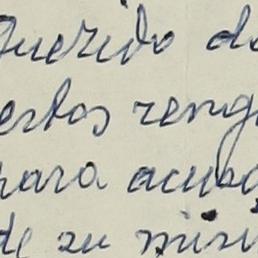 Querido do
estos reng
para acusa
de su misi